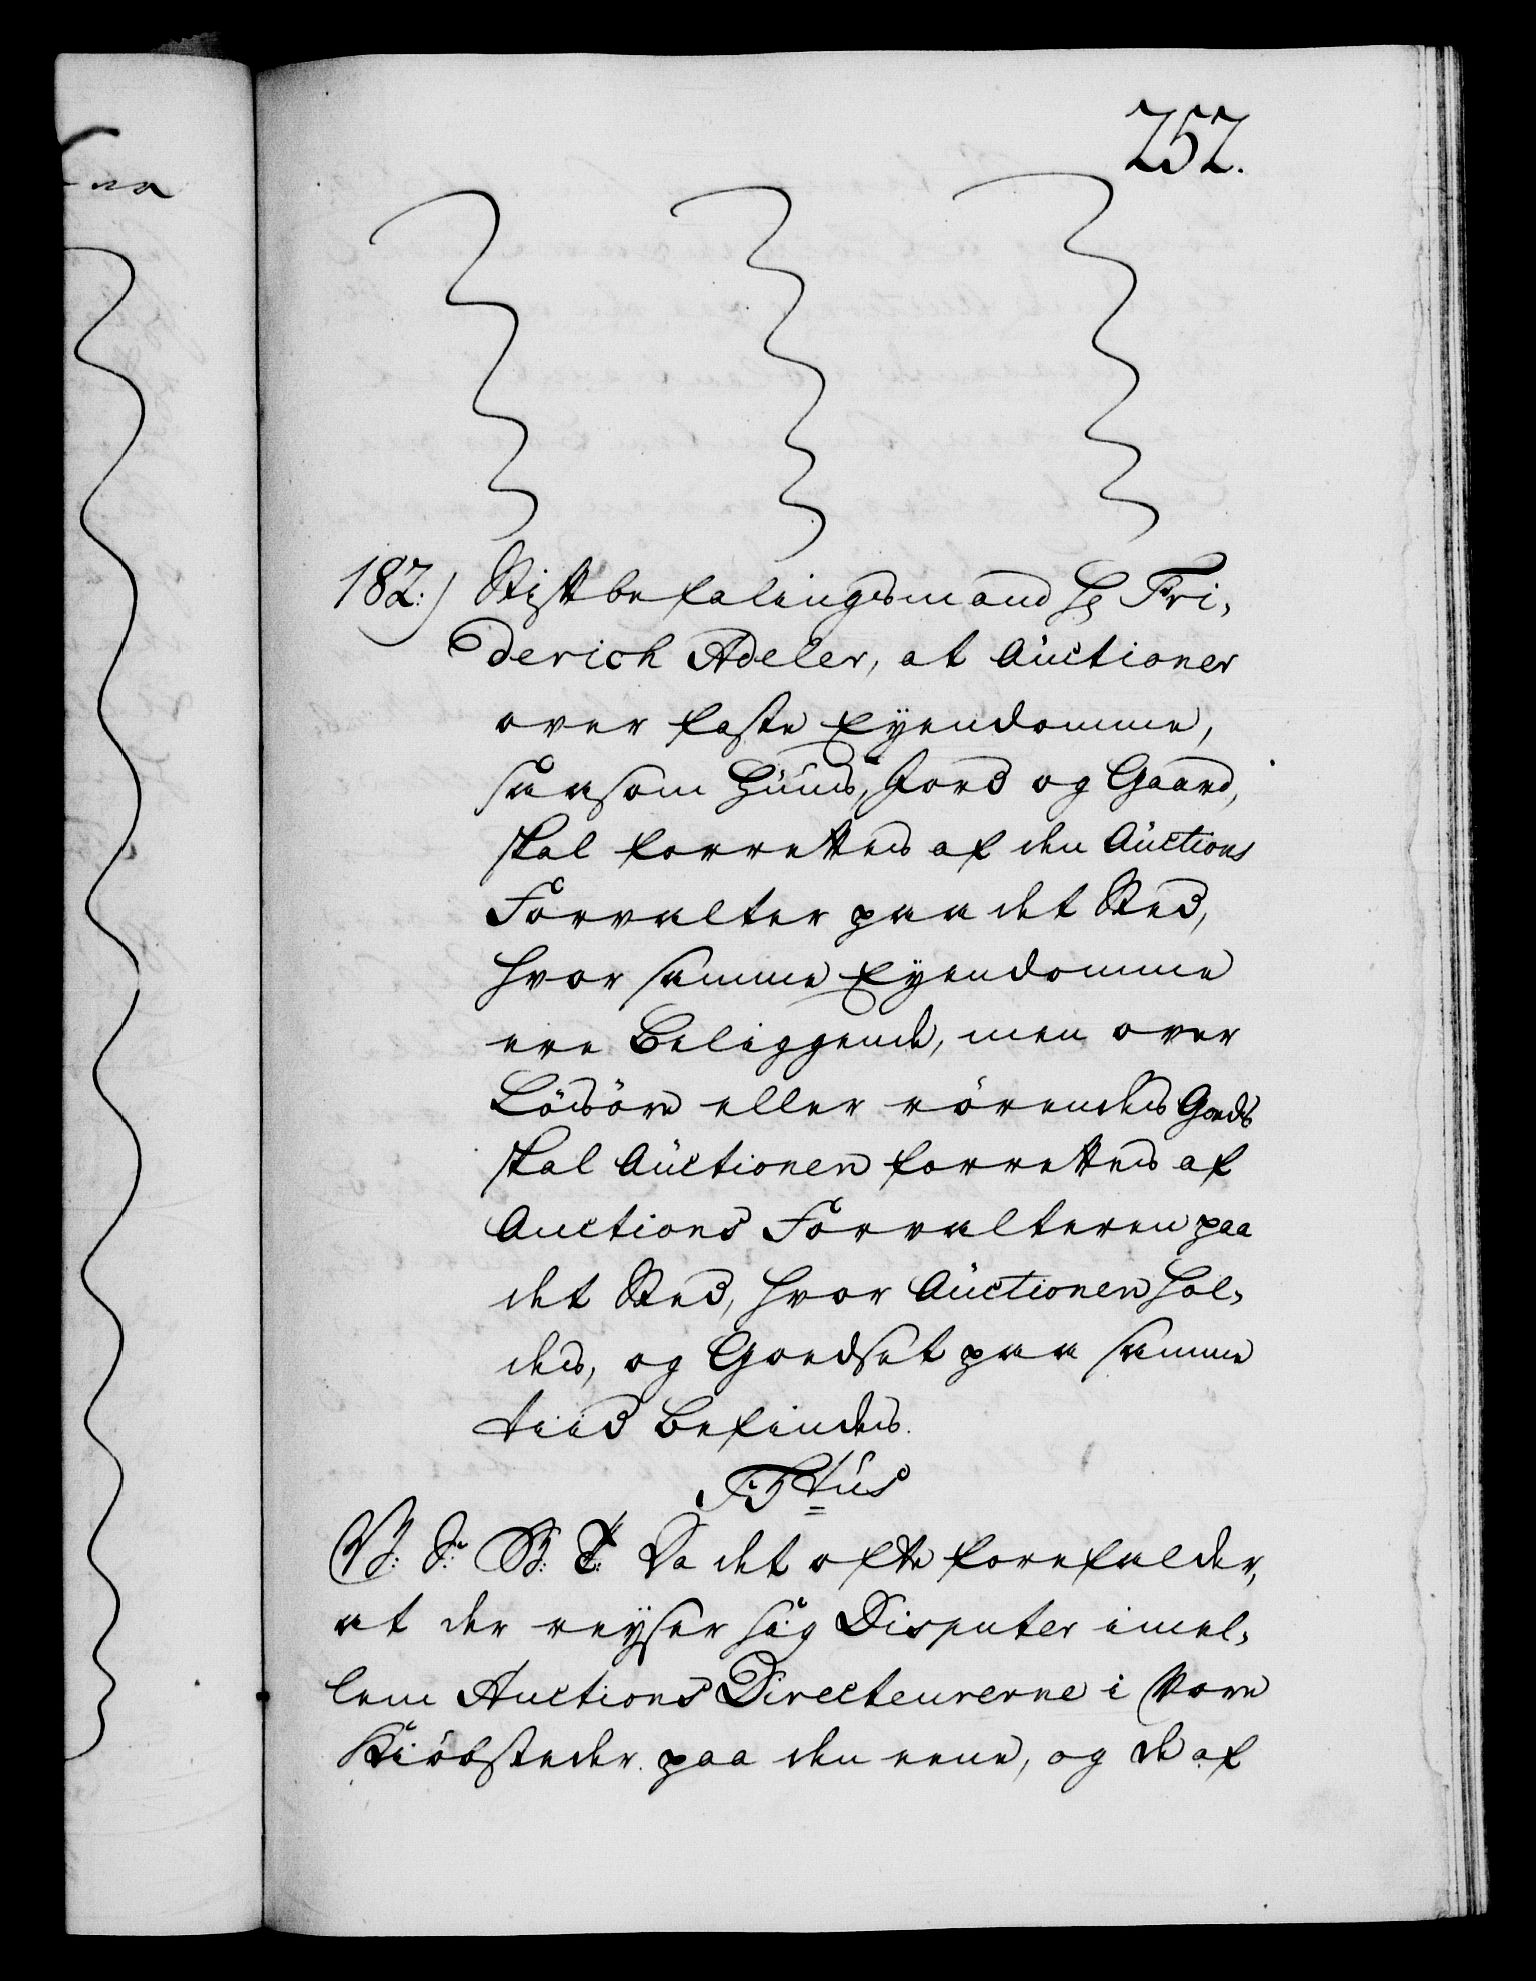 252.
182:) Stiftbefalingsmand Hr Fri-
derich Adeler, at Auctioner
over faste Eyendomme,
saasom Huus, Jord og Gaard,
skal forrettes af den Auctions
Forvalter paa det Sted,
hvor samme Eyendomme
ere Beliggende, men over
Lösöre eller rörendes Gods
skal Auctionen forrettes af
Auctions Forvalteren paa
det Sted, hvor Auctionen hol-
des, og Goedset paa samme
tiid Befindes.
V: S: G: T: Da det ofte forefalder,
at der reyser sig Disputer imel-
lem Auctions Directeurerne i Vore
Kiöbsteder paa den eene, og de af